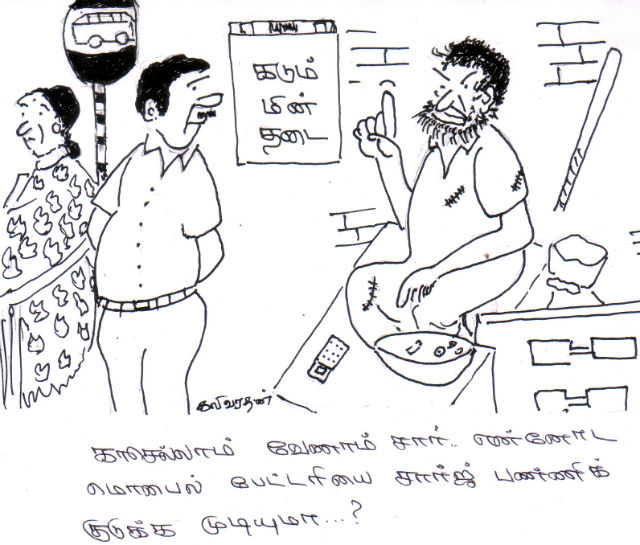 கடும்
மின்
தடை
கலிவரதன்
காசெல்லாம் வேணாம் சார்.. என்னோட
மொபைல் பேட்டரியை சார்ஜ் பண்ணிக்
குடுக்க முடியுமா...?